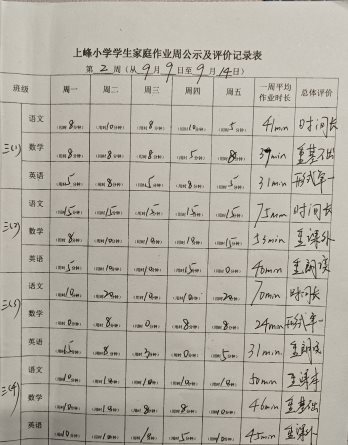 上峰小学学生家庭作业周公示及评价记录表
第 2 周（从 9 月 9 日至 9 月 14 日）
班级 周一 周二 周三 周四 周五 一周平均作业时长 总体评价
三(1) 语文 (用时 8 分钟) (用时 10 分钟) (用时 8 分钟) (用时 10 分钟) (用时 5 分钟) 41min 时间长
数学 (用时 8 分钟) (用时 8 分钟) (用时 8 分钟) (用时 5 分钟) (用时 8 分钟) 重基础
英语 (用时 5 分钟) (用时 8 分钟) (用时 5 分钟) (用时 8 分钟) (用时 5 分钟) 31min 形式单一
三(2) 语文 (用时 15 分钟) (用时 15 分钟) (用时 15 分钟) (用时 15 分钟) (用时 15 分钟) 75min 时间长
数学 (用时 8 分钟) (用时 10 分钟) (用时 10 分钟) (用时 分钟) (用时 15 分钟) 重课外
英语 (用时 5 分钟) (用时 10 分钟) (用时 10 分钟) (用时 15 分钟) (用时 0 分钟) 40min 重朗读
三(3) 语文 (用时 10 分钟) (用时 20 分钟) (用时 10 分钟) (用时 10 分钟) (用时 20 分钟) 70min 时间长
数学 (用时 0 分钟) (用时 8 分钟) (用时 0 分钟) (用时 8 分钟) (用时 8 分钟) 24min 形式单一
英语 (用时 分钟) (用时 8 分钟) (用时 分钟) (用时 0 分钟) (用时 5 分钟) 31min 重朗读
三(4) 语文 (用时 10 分钟) (用时 10 分钟) (用时 10 分钟) (用时 10 分钟) (用时 10 分钟) 50min 重课本
数学 (用时 10 分钟) (用时 10 分钟) (用时 8 分钟) (用时 8 分钟) (用时 10 分钟) 46min 重基础
英语 (用时 10 分钟) (用时 10 分钟) (用时 10 分钟) (用时 5 分钟) (用时 10 分钟) 45min 重课外